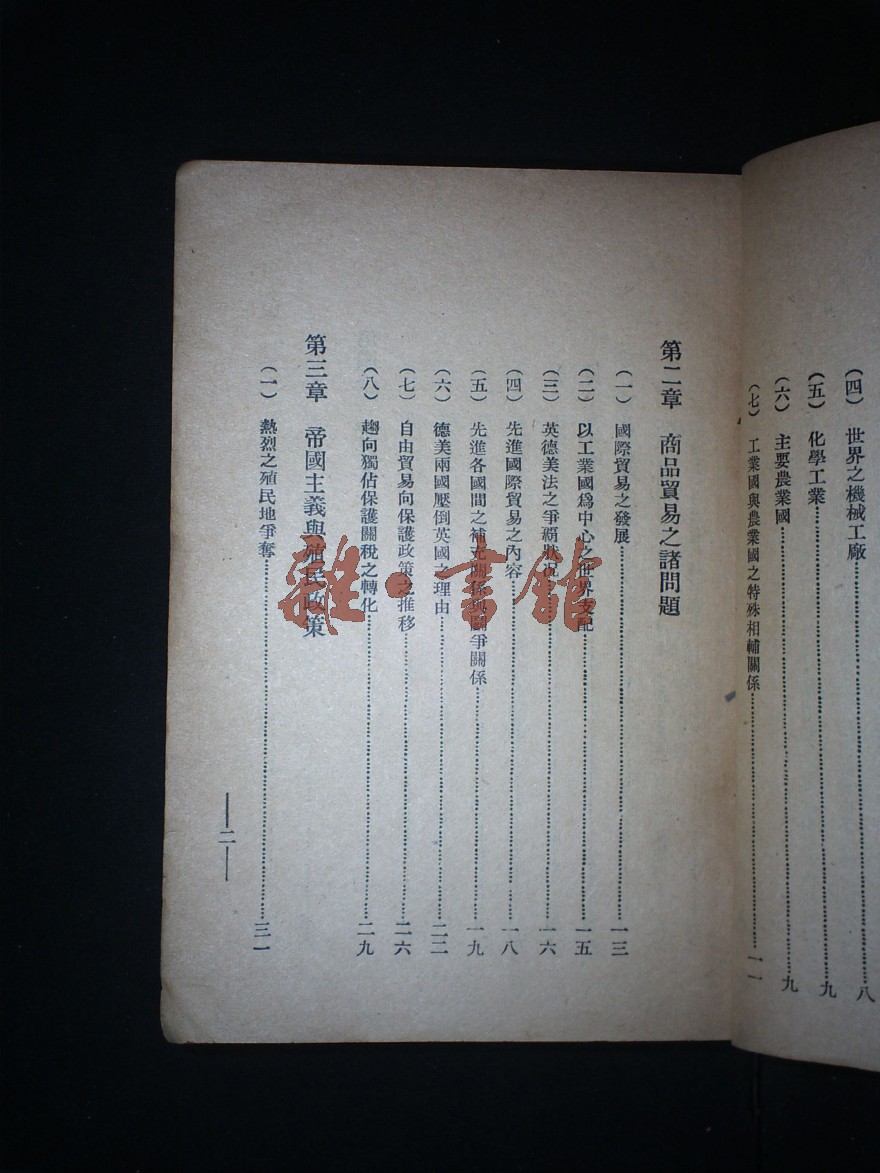 （四） 世界之機械工廠…………八
（五） 化學工業…………九
（六） 主要農業國…………九
（七） 工業國與農業國之特殊相輔關係…………一一
第二章 商品貿易之諸問題
（一） 國際貿易之發展…………一三
（二） 以工業國爲中心之世界支配…………一五
（三） 英德美法之爭霸狀况…………一六
（四） 先進國際貿易之內容…………一八
（五） 先進各國間之補充關係與鬪爭關係…………一九
（六） 德美兩國壓倒英國之理由…………二二
（七） 自由貿易向保護政策之推移…………二六
（八） 趨向獨佔保護關稅之轉化…………二九
第三章 帝國主義與殖民政策
（一） 熱烈之殖民地爭奪…………三一
—二—
雜·書館